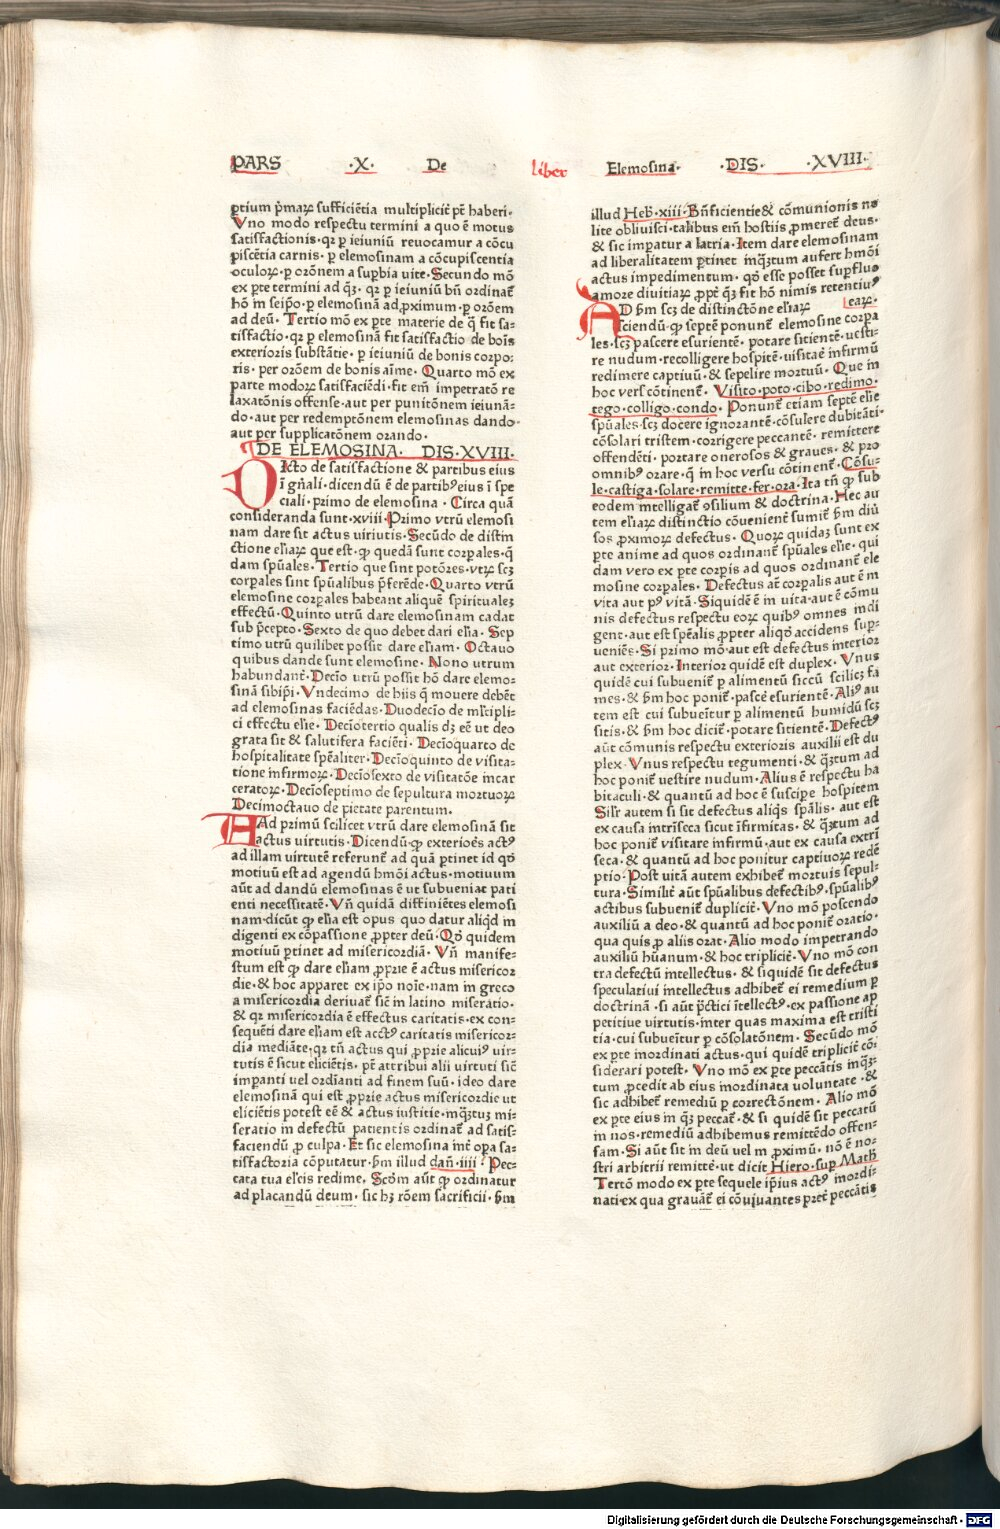 PARS ·X· De liber Elemosina· ·DIS· ·XVIII·
ptium p̄maꝝ sufficiētia multiplicit̄ pt̄ haberi·
Vno modo respectu termini a quo ē motus
satisfactionis·qꝛ p ieiuniū reuocamur a cōcu
piscētia carnis·p elemosinam a cōcupiscentia
oculoꝝ·p orōnem a supbia uite·Secundo mō
ex pte termini ad qꝫ· qꝛ p ieiuniū bn̄ ordinat̄
hō in seip̄o·p elemosinā ad ꝓximum·p orōem
ad deū· Tertio mō ex pte materie de q̄ fit sa-
tisfactio·qꝛ p elemosinā fit satisfactio de bōis
exterioris substātie· p ieiuniū de bonis corpo-
ris· per orōem de bonis aīme· Quarto mō ex
parte modoꝝ satisfaciēdi·fit em̄ impetratō re
laxatōnis offense·aut per punitōnem ieiunā-
do·aut per redemptōnem elemosinas dando·
aut per supplicatōnem orando·
DE ELEMOSINA· DIS·XVIII·
DIcto de satisfactione & partibus eius
ī gn̄ali·dicendū ē de partibꝰ eius ī spe
ciali·primo de elemosina · Circa quā
consideranda sunt·xviii·Primo vtrū elemosi
nam dare sit actus uirtutis·Secūdo de distin
ctione eliaꝝ que est·ꝙ quedā sunt corpales·q̄
dam sp̄uales·Tertio que sint potōres·vtꝝ scꝫ
corpales sint sp̄ualibus p̄ferēde·Quarto vtrū
elemosine corpales habeant aliquē spiritualeꝫ
effectū·Quinto utrū dare elemosinam cadat
sub p̄cepto·Sexto de quo debet dari elia·Sep
timo utrū quilibet possit dare eliam· Octauo
quibus dande sunt elemosine· Nono utrum
habundant̄·Decīo utrū possit hō dare elemo-
sinā sibip̄i·Vndecimo de hiis q̄ mouere debēt
ad elemosinas faciēdas·Duodecīo de mltipli-
ci effectu elie·Decīotertio qualis dꝫ eē ut deo
grata sit & salutifera faciēti· Decīoquarto de
hospitalitate sp̄ealiter·Decīoquinto de visita-
tione infirmoꝝ·Decīosexto de visitatōe incar
ceratoꝝ·Decīoseptimo de sepultura mortuoꝝ
Decimoctauo de pietate parentum·
AAd primū scilicet vtrū dare elemosinā sit
actus virtutis·Dicendū·ꝙ exterioēs actꝰ
ad illam uirtutē referunt̄ ad quā ptinet id qđ
motiuū est ad agendū hmōi actus·motiuum
aūt ad dandū elemosinas ē ut subueniat pati
enti necessitatē·Vn̄ quidā diffiniētes elemosi
nam·dicūt ꝙ elia est opus quo datur aliqd in
digenti ex cōpassione ꝓpter deū·Qđ quidem
motiuū ptinet ad misericordiā· Vn̄ manife-
stum est ꝙ dare eliam ꝓprie ē actus misericor
die·& hoc apparet ex ip̄o noīe·nam in greco
a misericordia deriuat̄ sic̄ in latino miseratio·
& qꝛ misericordia ē effectus caritatis·ex con-
sequēti dare eliam est actꝰ caritatis misericor-
dia mediāte·qꝛ tn̄ actus qui ꝓprie alicuiꝰ uir-
tutis ē sicut eliciētis· pt̄ attribui alii virtuti sic̄
impanti vel ordīanti ad finem suū·ideo dare
elemosinā qui est ꝓprie actus misericordie ut
eliciētis potest eē & actus iustitie·inqꝫtuꝫ mi-
seratio in defectū patientis ordinat̄ ad satis-
faciendū ꝓ culpa·Et sic elemosina int̄ opa sa-
tisfactoria cōputatur·ẜm illud dan̄·iiii· Pec-
cata tua el̄eīs redime· Scđm aūt ꝙ ordinatur
ad placandū deum·sic hꝫ rōem sacrificii·ẜm
illud Heb̄·xiii·Bn̄ficientie& cōmunionis no
lite obliuisci·talibus em̄ hostiis ꝓmeret̄ deus·
& sic imperatur a latria·Item dare elemosinam
ad liberalitatem ptinet inqꝫtum aufert hmōi
actus impedimentum· qđ esse posset supfluꝰ
amore diuitiaꝝ ꝓpt̄ qꝫ fit hō nimis retentiuꝰ
AD ẜm scꝫ de distinctōne eliaꝝ ⌊eaꝝ·
Sciendū ꝙ septē ponunt̄ elemosine corpa
les·scꝫ pascere esurientē·potare sitientē·uesti-
re nudum·recolligere hospitē·uisitare infirmū
redimere captiuū·& sepelire mortuū· Que in
hoc versu cōtinent̄· Visito·poto·cibo·redimo·
tego·colligo·condo· Ponunt̄ etiam septē elie
sp̄uales·scꝫ docere ignorantē·cōsulere dubitāti·
cōsolari tristem·corrigere peccantē· remittere
offendēti· portare onerosos & graues· & pro
omnibꝰ orare·q̄ in hoc versu cōtinent̄·Cōsu-
le·castiga·solare·remitte·fer·ora·Ita tn̄ ꝙ sub
eodem intelligat̄ ꝯsilium & doctrina·Hec au
tem eliaꝝ distinctio cōuenient̄ sumit̄ ẜm diū
sos ꝓximoꝝ defectus· Quoꝝ quidaꝫ sunt ex
pte anime ad quos ordinant̄ sp̄uales elie·qui
dam vero ex pte corpis ad quos ordinant̄ ele
mosine corpales·Defectus at̄ corpalis aut ē in
vita aut pꝰ vitā·Siquidē ē in uita·aut ē cōmu
nis defectus respectu eoꝝ quibꝰ omnes indi
gent·aut est sp̄ealis ꝓpter aliqđ accidens sup-
ueniēs·Si primo mō·aut est defectus interior
aut exterior·Interior quidē est duplex· Vnus
quidē cui subuenit̄ p alimentū siccū scilicꝫ fa
mes·& ẜm hoc ponit̄·pascē esurientē·Aliꝰ au
tem est cui subueītur p alimentū humidū scꝫ
sitis·& ẜm hoc dicit̄·potare sitientē·Defectꝰ
aūt cōmunis respectu exterioris auxilii est du
plex·Vnus respectu tegumenti·& qꝫtum ad
hoc ponit̄ vestire nudum·Alius ē respectu ha
bitaculi·& quantū ad hoc ē suscipe hospitem
Silr autem si sit defectus aliqs sp̄alis· aut est
ex causa intrīseca sicut īfirmitas·& qꝫtum ad
hoc ponit̄ visitare infirmū·aut ex causa extrī
seca·& quantū ad hoc ponitur captiuoꝝ redē
ptio·Post uitā autem exhibet̄ mortuis sepul-
tura·Similit̄ aūt sp̄ualibus defectibꝰ·sp̄ualibꝰ
actibus subuenit̄ duplicit̄·Vno mō poscendo
auxiliū a deo·& quantū ad hoc ponit̄ oratio·
qua quis ꝓ aliis orat·Alio modo impetrando
auxiliū hūanum·& hoc triplicit̄·Vno mō con
tra defectū intellectus·& siquidē sit defectus
speculatiui intellectus adhibet̄ ei remedium p
doctrinā·si aūt p̄ctici ītellectꝰ·ex passione ap
petitiue virtutis·inter quas maxima est tristi
tia·cui subueītur p cōsolatōnem· Secūdo mō
ex pte inordinati actus·qui quidē triplicit̄ cō-
siderari potest· Vno mō ex pte peccātis inqꝫ-
tum ꝓcedit ab eius inordinata voluntate·&
sic adhibet̄ remediū p correctōnem· Alio mō
ex pte eius in qꝫ peccat̄·& si quidē sit peccatū
in nos·remediū adhibemus remittēdo offen-
sam·Si aūt sit in deū vel in ꝓximū· nō ē no-
stri arbitrii remitte·ut dicit Hiero·sup Math̄
Tertō modo ex pte sequele ip̄ius actꝰ inordi-
nati·ex qua grauāt̄ ei cōuiuantes pret̄ peccātis
Digitalisierung gefördert durch die Deutsche Forschungsgemeinschaft - DFG